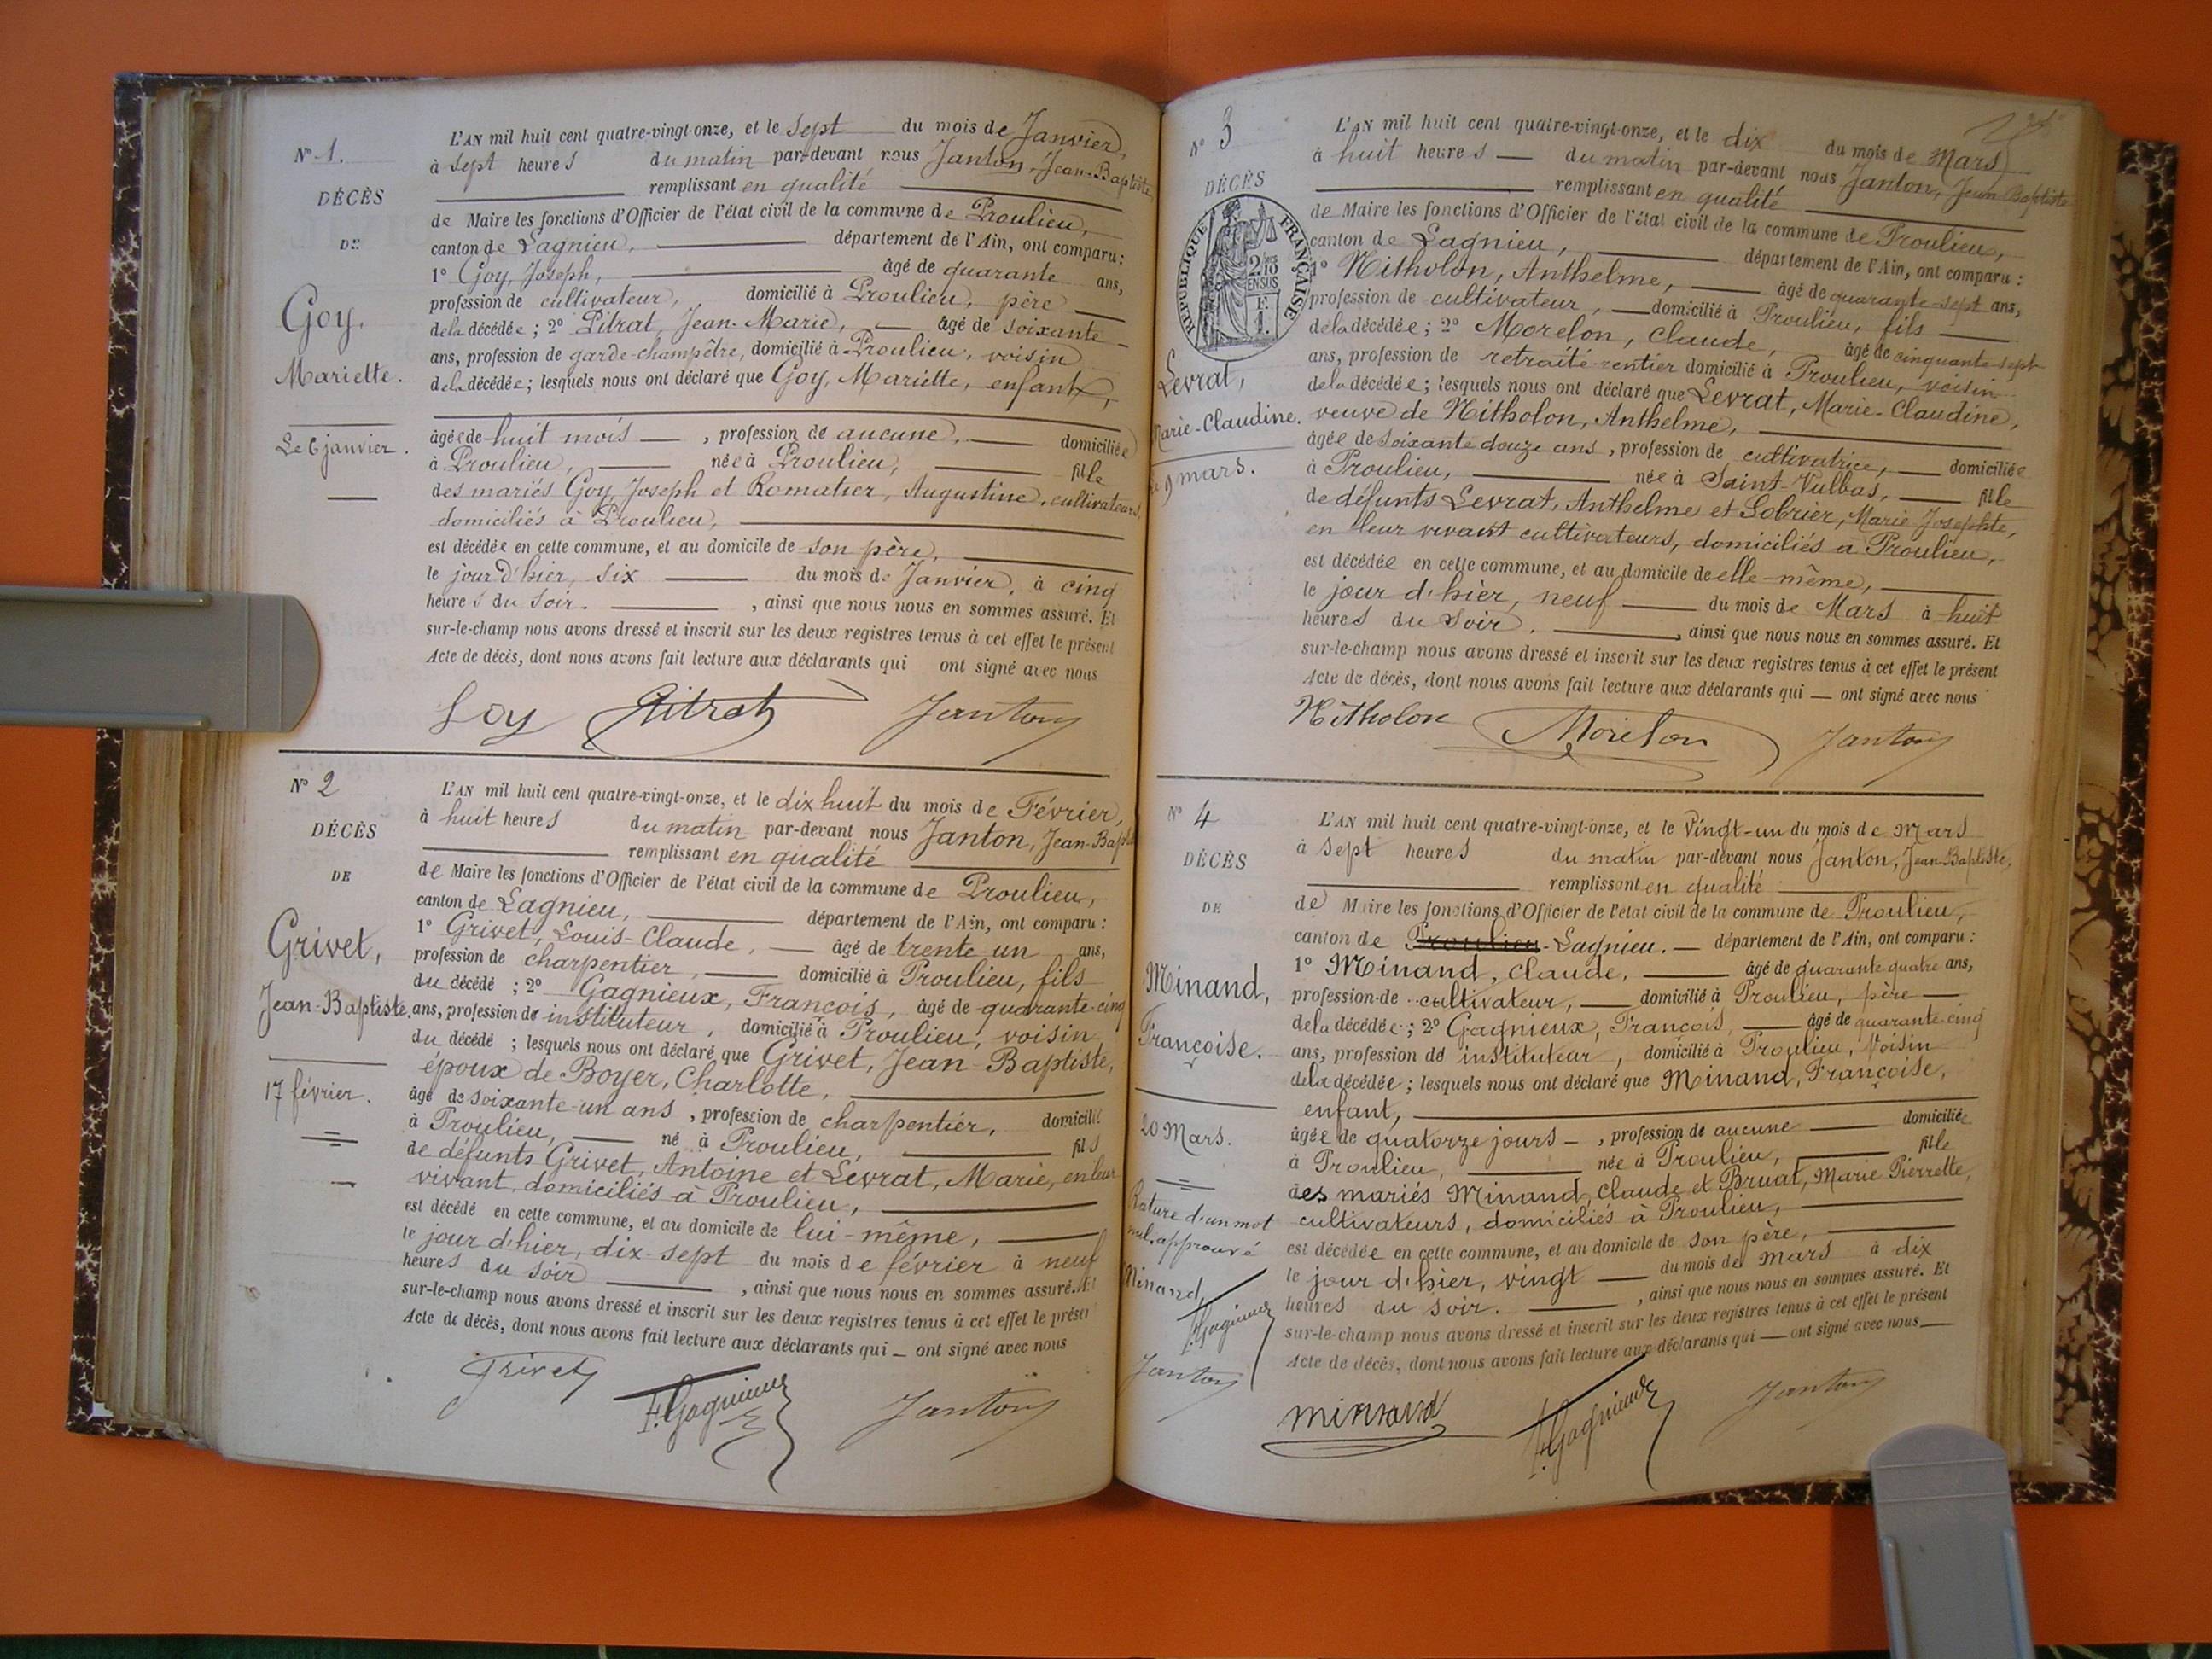 N° 1.
DÉCÈS
DE
Goy,
Mariette.
Le 6 janvier.
L'AN mil huit cent quatre-vingt-onze, et le sept du mois de Janvier,
à sept heures du matin par-devant nous Janton, Jean-Baptiste
remplissant en qualité
de Maire les fonctions d'Officier de l'état civil de la commune de Proulieu,
canton de Lagnieu, département de l'Ain, ont comparu :
1° Goy, Joseph, âgé de quarante ans,
profession de cultivateur, domicilié à Proulieu, père
de la décédée ; 2° Pitrat, Jean-Marie, âgé de soixante
ans, profession de garde-champêtre, domicilié à Proulieu, voisin
de la décédée ; lesquels nous ont déclaré que Goy, Mariette, enfant,
âgée de huit mois, profession de aucune, domiciliée
à Proulieu, née à Proulieu, fille
des mariés Goy, Joseph et Romatier, Augustine, cultivateurs,
domiciliés à Proulieu,
est décédée en cette commune, et au domicile de son père,
le jour d'hier, six du mois de Janvier, à cinq
heures du soir. , ainsi que nous nous en sommes assuré. Et
sur-le-champ nous avons dressé et inscrit sur les deux registres tenus à cet effet le présent
Acte de décès, dont nous avons fait lecture aux déclarants qui ont signé avec nous
Goy Pitrat Janton
N° 2
DÉCÈS
DE
Grivet,
Jean-Baptiste
17 février.
L'AN mil huit cent quatre-vingt-onze, et le dix huit du mois de Février,
à huit heures du matin par-devant nous Janton, Jean-Bapt
remplissant en qualité
de Maire les fonctions d'Officier de l'état civil de la commune de Proulieu,
canton de Lagnieu, département de l'Ain, ont comparu :
1° Grivet, Louis-Claude, âgé de trente-un ans,
profession de charpentier, domicilié à Proulieu, fils
du décédé ; 2° Gagnieux, François, âgé de quarante-cinq
ans, profession de instituteur, domicilié à Proulieu, voisin
du décédé ; lesquels nous ont déclaré que Grivet, Jean-Baptiste,
époux de Boyer, Charlotte,
âgé de soixante-un ans, profession de charpentier, domicilié
à Proulieu, né à Proulieu, fils
de défunts Grivet, Antoine et Levrat, Marie, en leur
vivant, domiciliés à Proulieu,
est décédé en cette commune, et au domicile de lui-même,
le jour d'hier, dix-sept du mois de février à neuf
heures du soir , ainsi que nous nous en sommes assuré. Et
sur-le-champ nous avons dressé et inscrit sur les deux registres tenus à cet effet le présent
Acte de décès, dont nous avons fait lecture aux déclarants qui — ont signé avec nous
Grivet F. Gagnieux Janton
N° 3
DÉCÈS
RÉPUBLIQUE FRANÇAISE
2/10
EN SUS
F.
1.
Levrat,
Marie-Claudine.
Le 9 mars.
L'AN mil huit cent quatre-vingt-onze, et le dix du mois de Mars
à huit heures — du matin par-devant nous Janton, Jean-Baptiste
remplissant en qualité
de Maire les fonctions d'Officier de l'état civil de la commune de Proulieu,
canton de Lagnieu, département de l'Ain, ont comparu :
1° Nitholon, Anthelme, âgé de quarante-sept ans,
profession de cultivateur, domicilié à Proulieu, fils
de la décédée ; 2° Morelon, Claude, âgé de cinquante-sept
ans, profession de retraité rentier domicilié à Proulieu, voisin
de la décédée ; lesquels nous ont déclaré que Levrat, Marie-Claudine,
veuve de Nitholon, Anthelme,
âgée de soixante douze ans, profession de cultivatrice, domiciliée
à Proulieu, née à Saint-Vulbas, fille
de défunts Levrat, Anthelme et Sobrier, Marie Josephte,
en lleur vivant cultivateurs, domiciliés à Proulieu,
est décédée en cette commune, et au domicile de elle-même,
le jour d'hier, neuf du mois de Mars à huit
heures du soir. , ainsi que nous nous en sommes assuré. Et
sur-le-champ nous avons dressé et inscrit sur les deux registres tenus à cet effet le présent
Acte de décès, dont nous avons fait lecture aux déclarants qui — ont signé avec nous
Nitholon Morelon Janton
N° 4
DÉCÈS
DE
Minand,
Françoise.
20 Mars.
Rature d'un mot
nul, approuvé
Minand,
F. Gagnieux
Janton
L'AN mil huit cent quatre-vingt-onze, et le Vingt-un du mois de Mars
à sept heures du matin par-devant nous Janton, Jean-Baptiste,
remplissant en qualité
de Maire les fonctions d'Officier de l'état civil de la commune de Proulieu,
canton de Proulieu - Lagnieu. — département de l'Ain, ont comparu :
1° Minand, Claude, âgé de quarante-quatre ans,
profession de cultivateur, domicilié à Proulieu, père
de la décédée ; 2° Gagnieux, François, âgé de quarante-cinq
ans, profession de instituteur, domicilié à Proulieu, Voisin
de la décédée ; lesquels nous ont déclaré que Minand, Françoise,
enfant,
âgée de quatorze jours —, profession de aucune domiciliée
à Proulieu, née à Proulieu, fille
des mariés Minand, Claude et Bruat, Marie Pierrette,
cultivateurs, domiciliés à Proulieu,
est décédée en cette commune, et au domicile de son père,
le jour d'hier, vingt du mois de Mars à dix
heures du soir. , ainsi que nous nous en sommes assuré. Et
sur-le-champ nous avons dressé et inscrit sur les deux registres tenus à cet effet le présent
Acte de décès, dont nous avons fait lecture aux déclarants qui — ont signé avec nous
Minand F. Gagnieux Janton